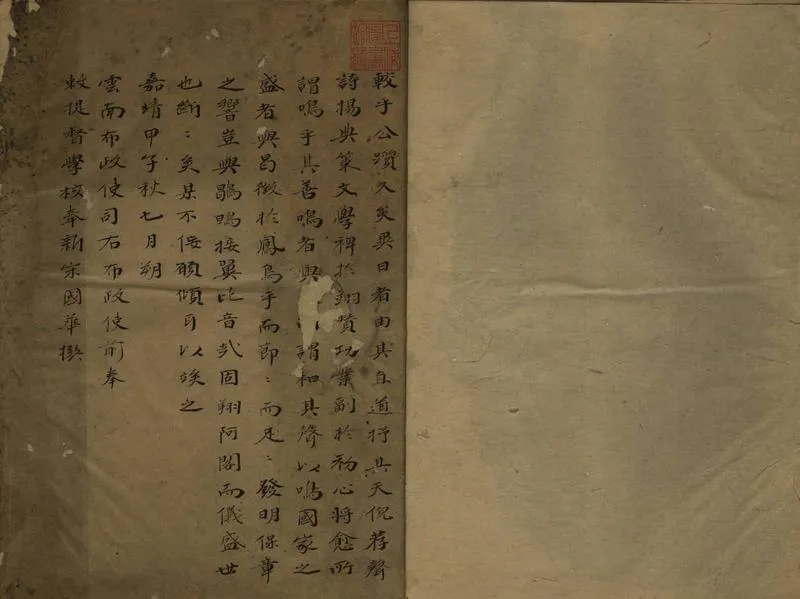 較乎公躓久矣異日者由其直道抒其天倪荐聲
詩揚典策文學稗於翊贊功業副於初心將愈所
謂鳴乎其善鳴者與 謂和其聲以鳴國家之
盛者與曷徵於鳳鳥乎而節﹦而足﹦發明保章
之響豈與鶡鴠接翼比音哉固翔阿閣而儀盛世
也斷﹦矣某不佞頤傾耳以竢之
嘉靖甲子秋七月朔
雲南布政使司右布政使前奉
敕提督學校奉新宋國華撰